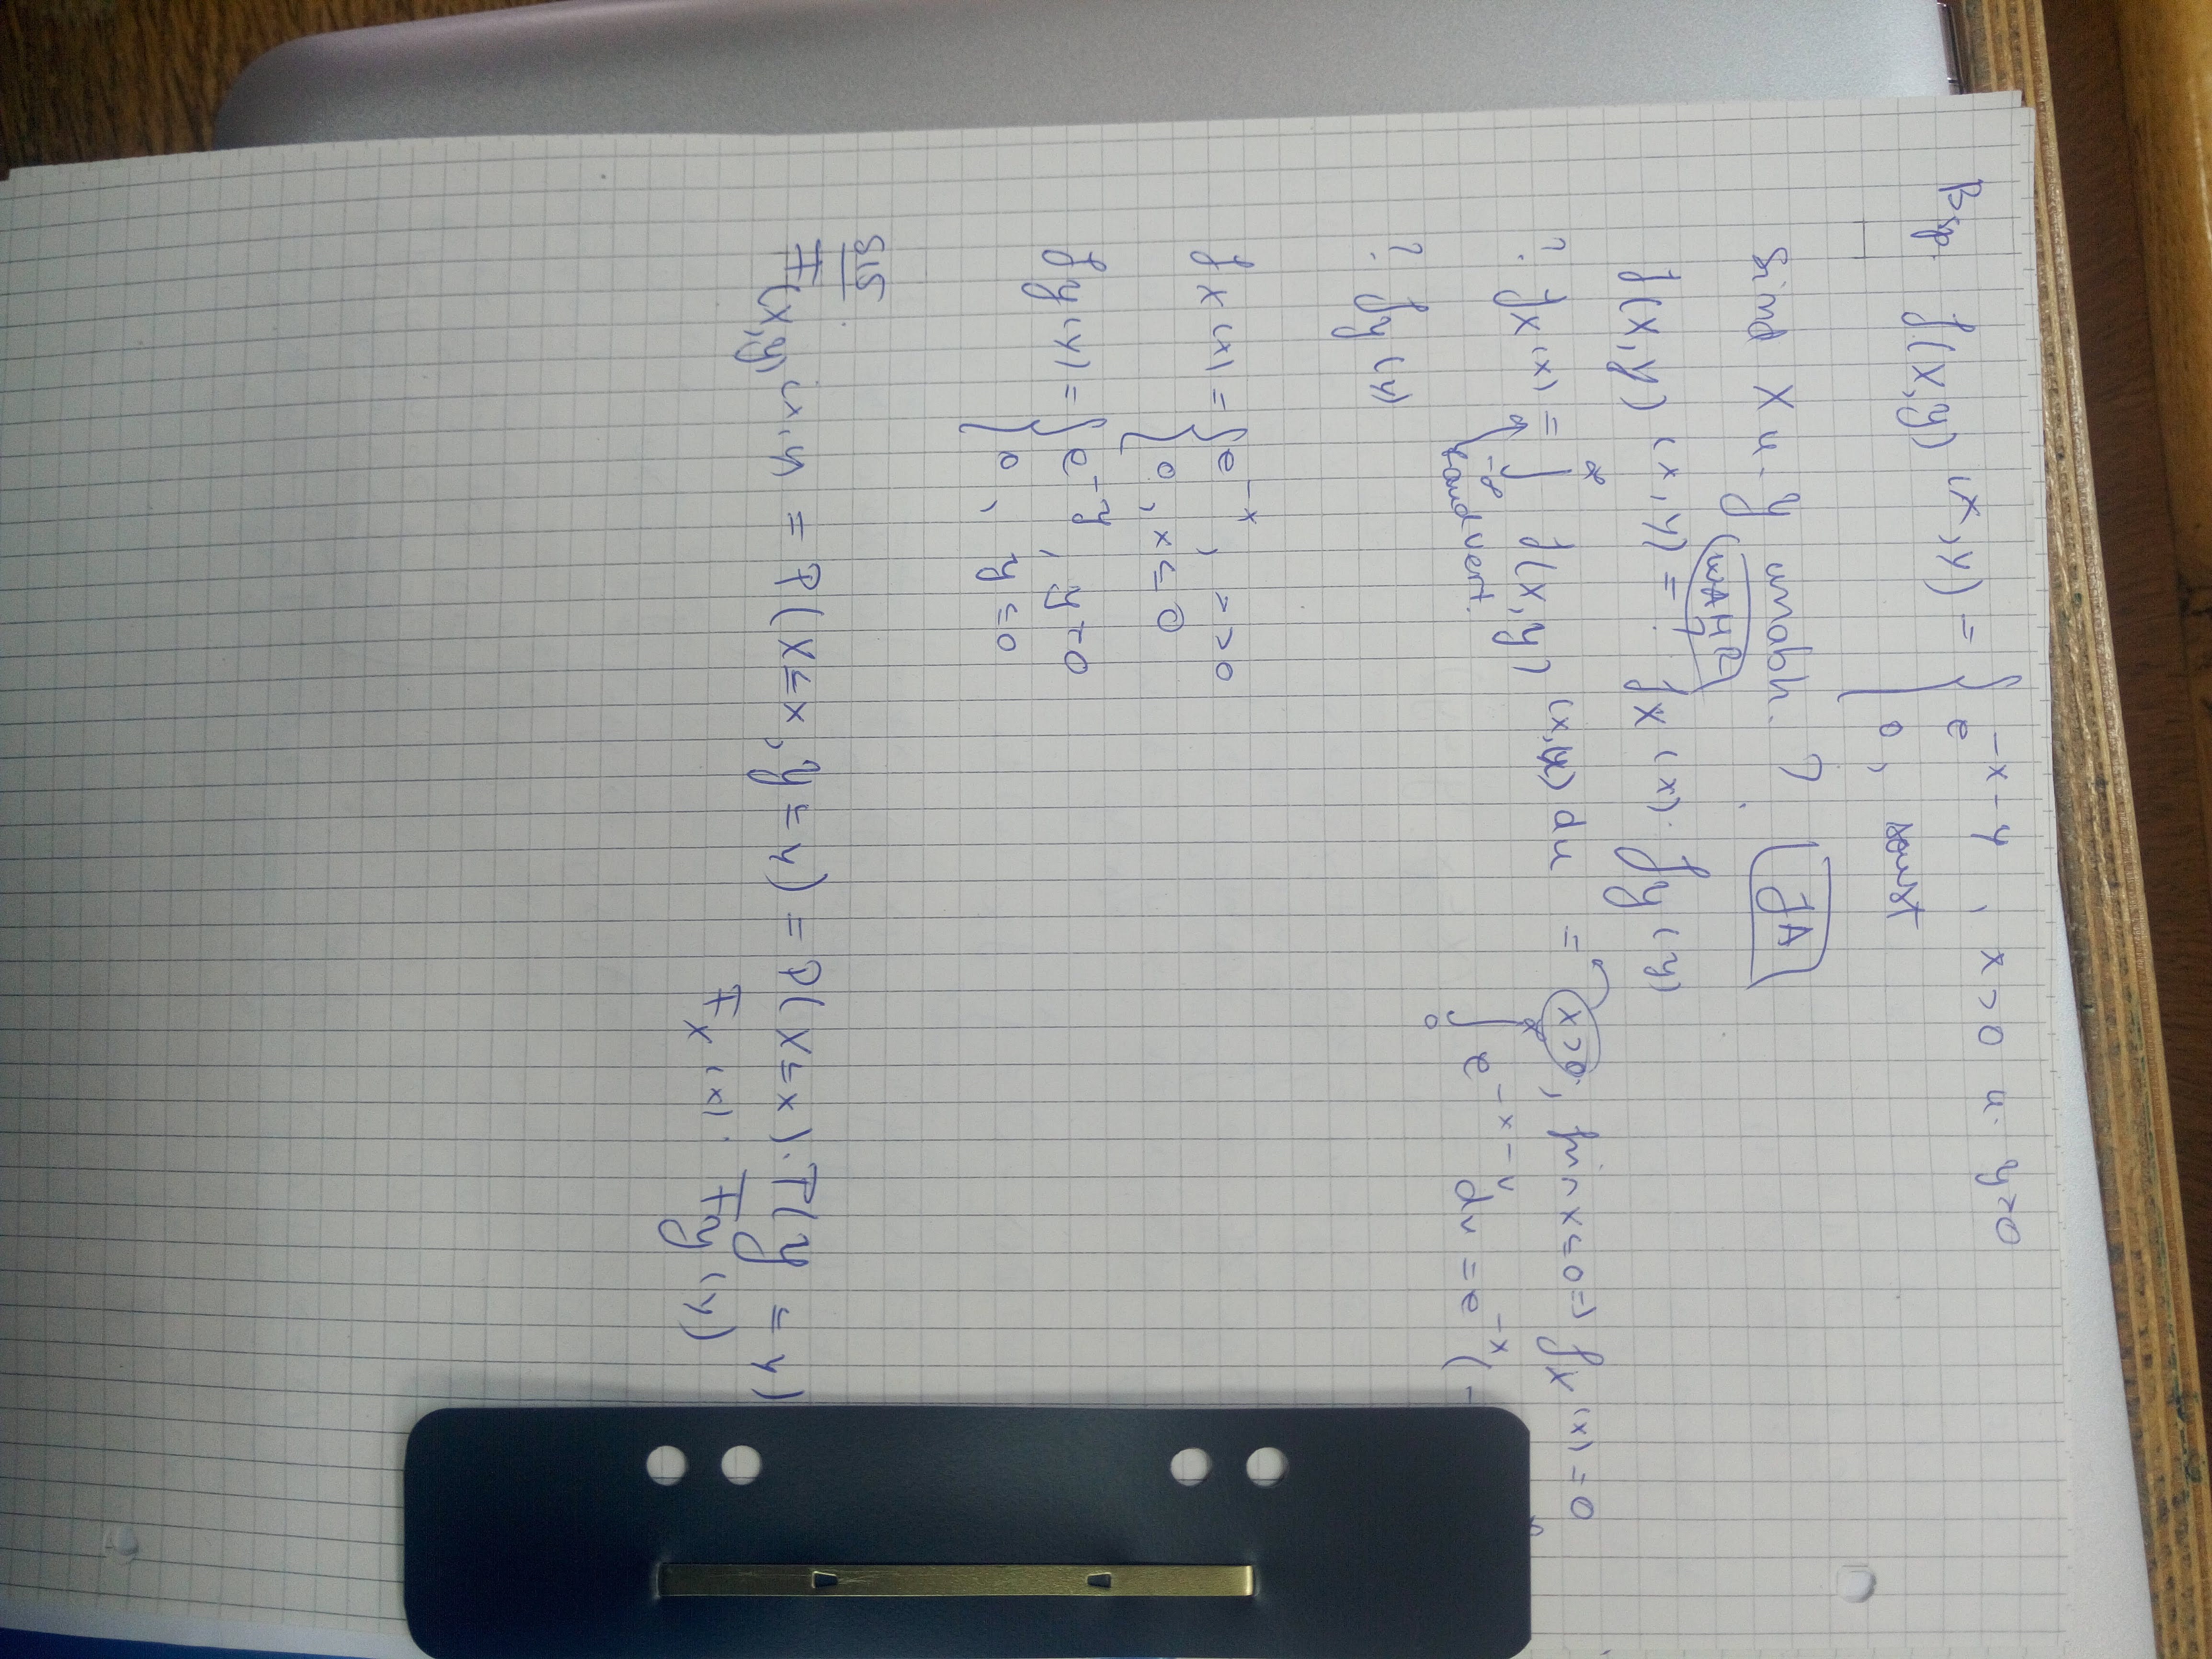 Bsp. f(X,Y) (x,y) = { e^{-x-y} , x>0 u. y>0
0, sonst
Sind X u. Y unabh. ? JA
WAHR
f(X,Y) (x,y) =? fX (x) · fY (y)
? fX (x) = ∫_{-∞}^{∞} f(X,Y) (x,u) du = x>0, für x≤0 => fX (x) = 0
Randvert. ∫_0^∞ e^{-x-v} dv = e^{-x} (-
? fY (y)
fX (x) = { e^{-x} , x>0
0, x≤0
fY (y) = { e^{-y} , y>0
0, y≤0
S15
F(X,Y) (x,y) = P(X≤x, Y≤y) = P(X≤x) · P(Y≤y)
FX (x) · FY (y)